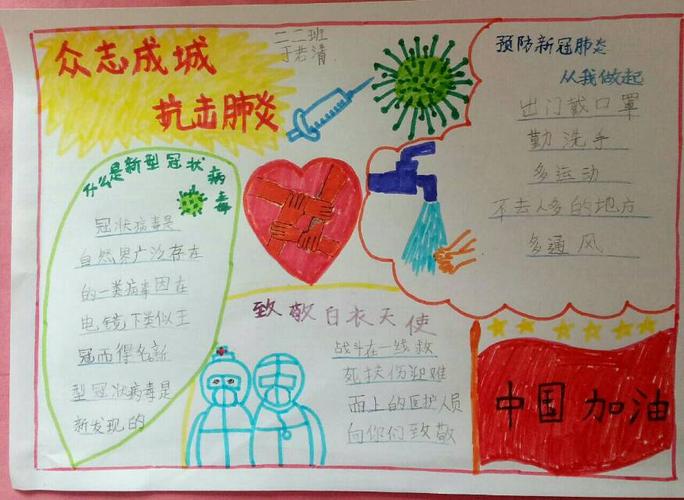 众志成城
抗击肺炎
二二班
于若清
预防新冠肺炎
从我做起
出门戴口罩
勤洗手
多运动
不去人多的地方
多通风
什么是新型冠状病毒
冠状病毒是
自然界广泛存在
的一类病毒因在
电镜下类似王
冠而得名新
型冠状病毒是
新发现的
致敬白衣天使
战斗在一线救
死扶伤迎难
而上的医护人员
向你们致敬
中国加油